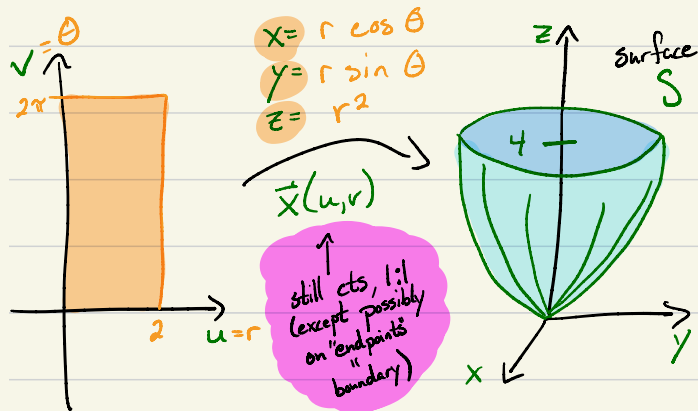 v = θ
2π
2
u = r
x = r cos θ
y = r sin θ
z = r²
x⃗(u,v)
↑
still cts, 1:1
(except possibly
on "endpoints"
"
boundary)
z
surface
S
4
y
x